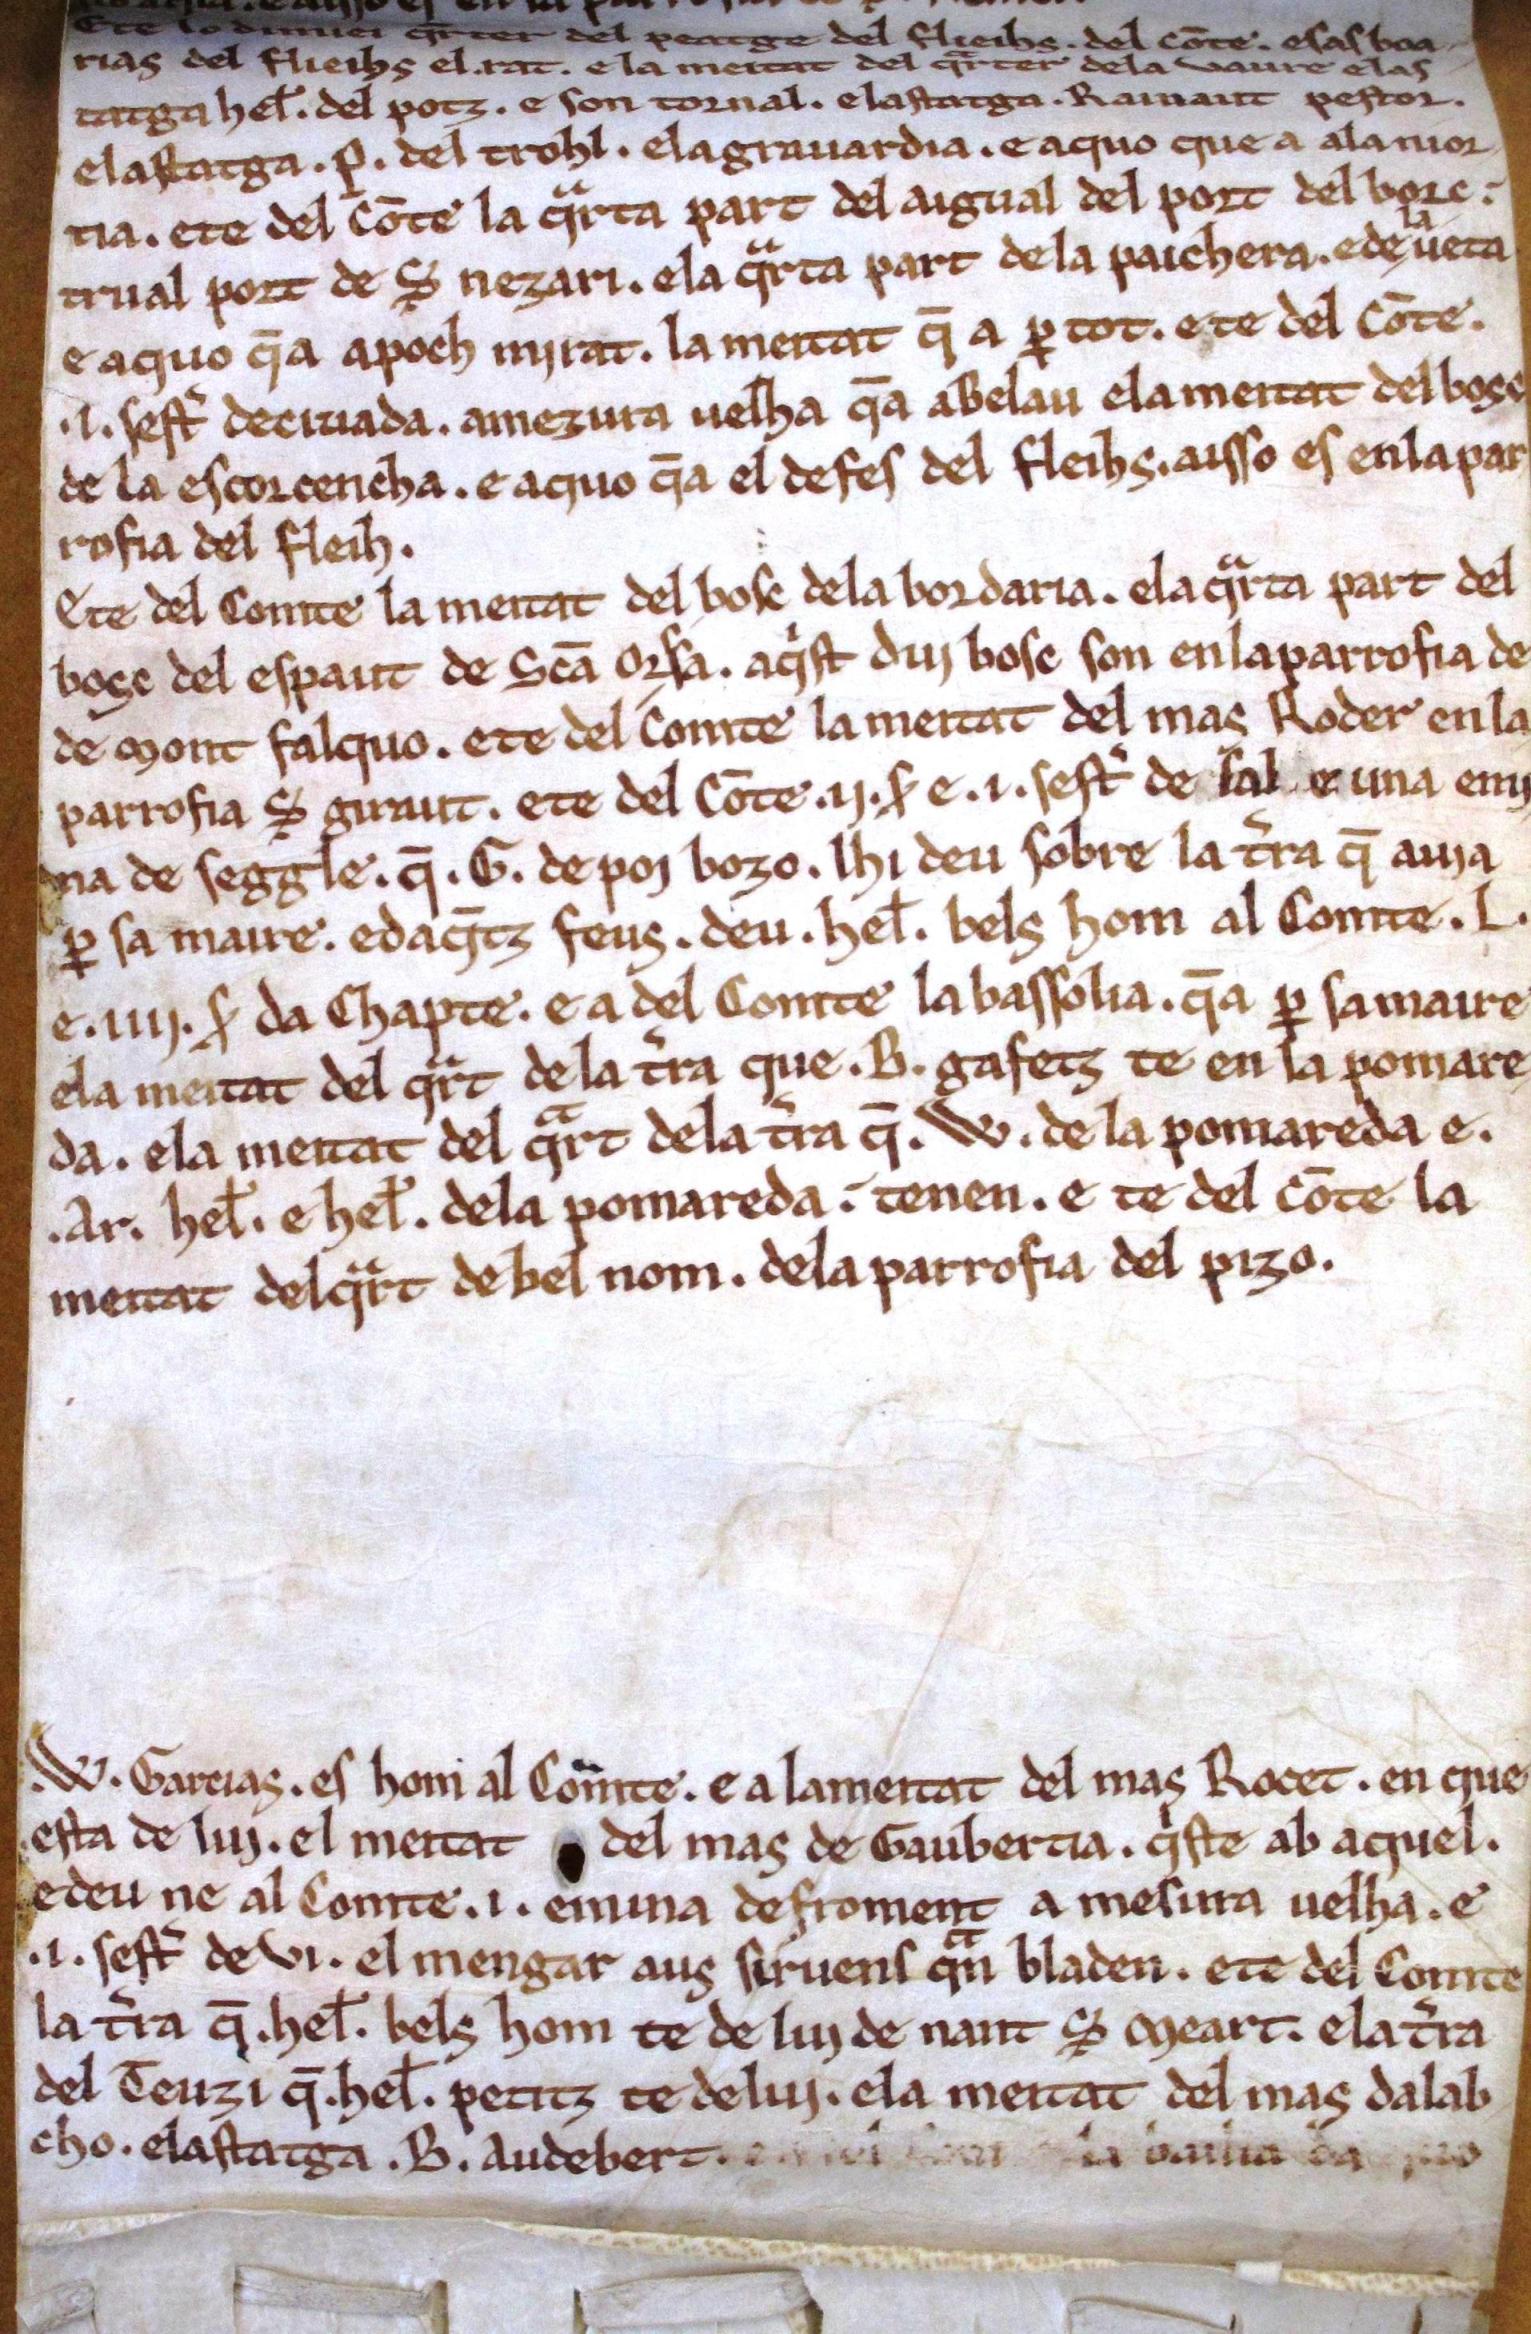 Ete lo dimiei q̃rter del peatge del flueihs. del cõte. esas boa
rias del flueihs el.rat. e la meitat del q̃rter dela vaure elas
tatga hel̃. del potz. e son tornal. elastatga. Ramaut pestor.
elastatga. P̱. del trohl. elagrauardia. e aquo que a alamor
tia. ete del Cõte la q̃rta part del aigual del port del borc:
trual port de S̃ nezari. ela q̃rta part dela paichera. ede la ueta
e aquo q̃a apoch mirat. la meitat q̃ a ꝑ tot. ete del Cõte.
.i. sest̃ deciuada. amezura uelha q̃a abelau elameitat del bosc
de la escorcencha. e aquo q̃a el defes del fleihs. aisso es enlapar
rofia del fleih.
Ete del Comte la meitat del bosc dela bordaria. elaq̃rta part del
bosc del espaut de Scã Orsa. aq̃st dui bosc son enlaparrofia de
de mont falquo. ete del Comte la meitat del mas Roder en la
parrofia S̃ giraut. ete del Cõte .ij. ẜ e .i. sest̃ de sal e una emi
na de seggle. q̃ .G. de poi bozo. lhi deu sobre la t̃ra q̃ auia
ꝑ sa maire. edaq̃tz feus. deu. hel̃. bels hom al Comte. L.
e .iiij. ẜ da Chapte. e a del Comte la bassolia. q̃a ꝑ samaire
ela meitat del q̃rt de la t̃ra que .B. gafetz te en la pomare
da. ela meitat del q̃rt dela t̃ra q̃. W. de la pomareda e.
.Ar. hel̃. e hel̃. dela pomareda: tenen. e te del cõte la
meitat delq̃rt de bel nom. dela parrofia del pizo.
.W. Garcias. es hom al Com̃te. e a lameitat del mas Rocet. en que
esta de lui. el meitat del mas de Gaubertia. q̃ste ab aquel.
edeu ne al Comte .i. emina defroment a mesura uelha. e
.i. sest̃ de vi. el mengar aus siruens q̃n bladen. ete del Comte
la t̃ra q̃ .hel̃. bels hom te de lui de nant S̃ Meart. ela t̃ra
del Teuzi q̃ .hel̃. petitz te delui. ela meitat del mas dalab
cho. elastatga .B. Audebert. la bailia